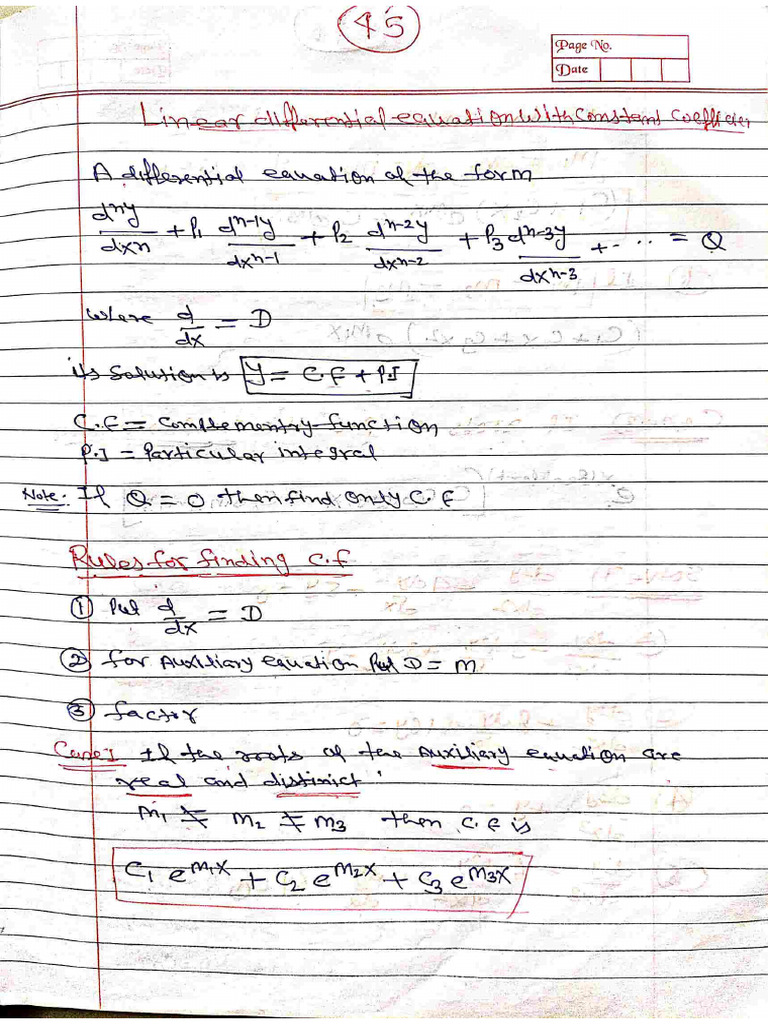 45
Page No.
Date
Linear differential equation with Constant Coefficien
A differential equation of the form
dⁿy/dxn + P₁ dⁿ⁻¹y/dxⁿ⁻¹ + P₂ dⁿ⁻²y/dxⁿ⁻² + P₃ dⁿ⁻³y/dxⁿ⁻³ + - ... = Q
where d/dx = D
its solution is y = C.F + P.I
C.F = Complementry function
P.I = Particular integral
Note: If Q = 0, then find only C.F
Rules for finding C.F
① Put d/dx = D
② for Auxiliary equation Put D = m
③ factor
Case I If the roots of the Auxiliary equation are
real and distinict
m₁ ≠ m₂ ≠ m₃ then C.F is
C₁ e^m₁x + C₂ e^m₂x + C₃ e^m₃x